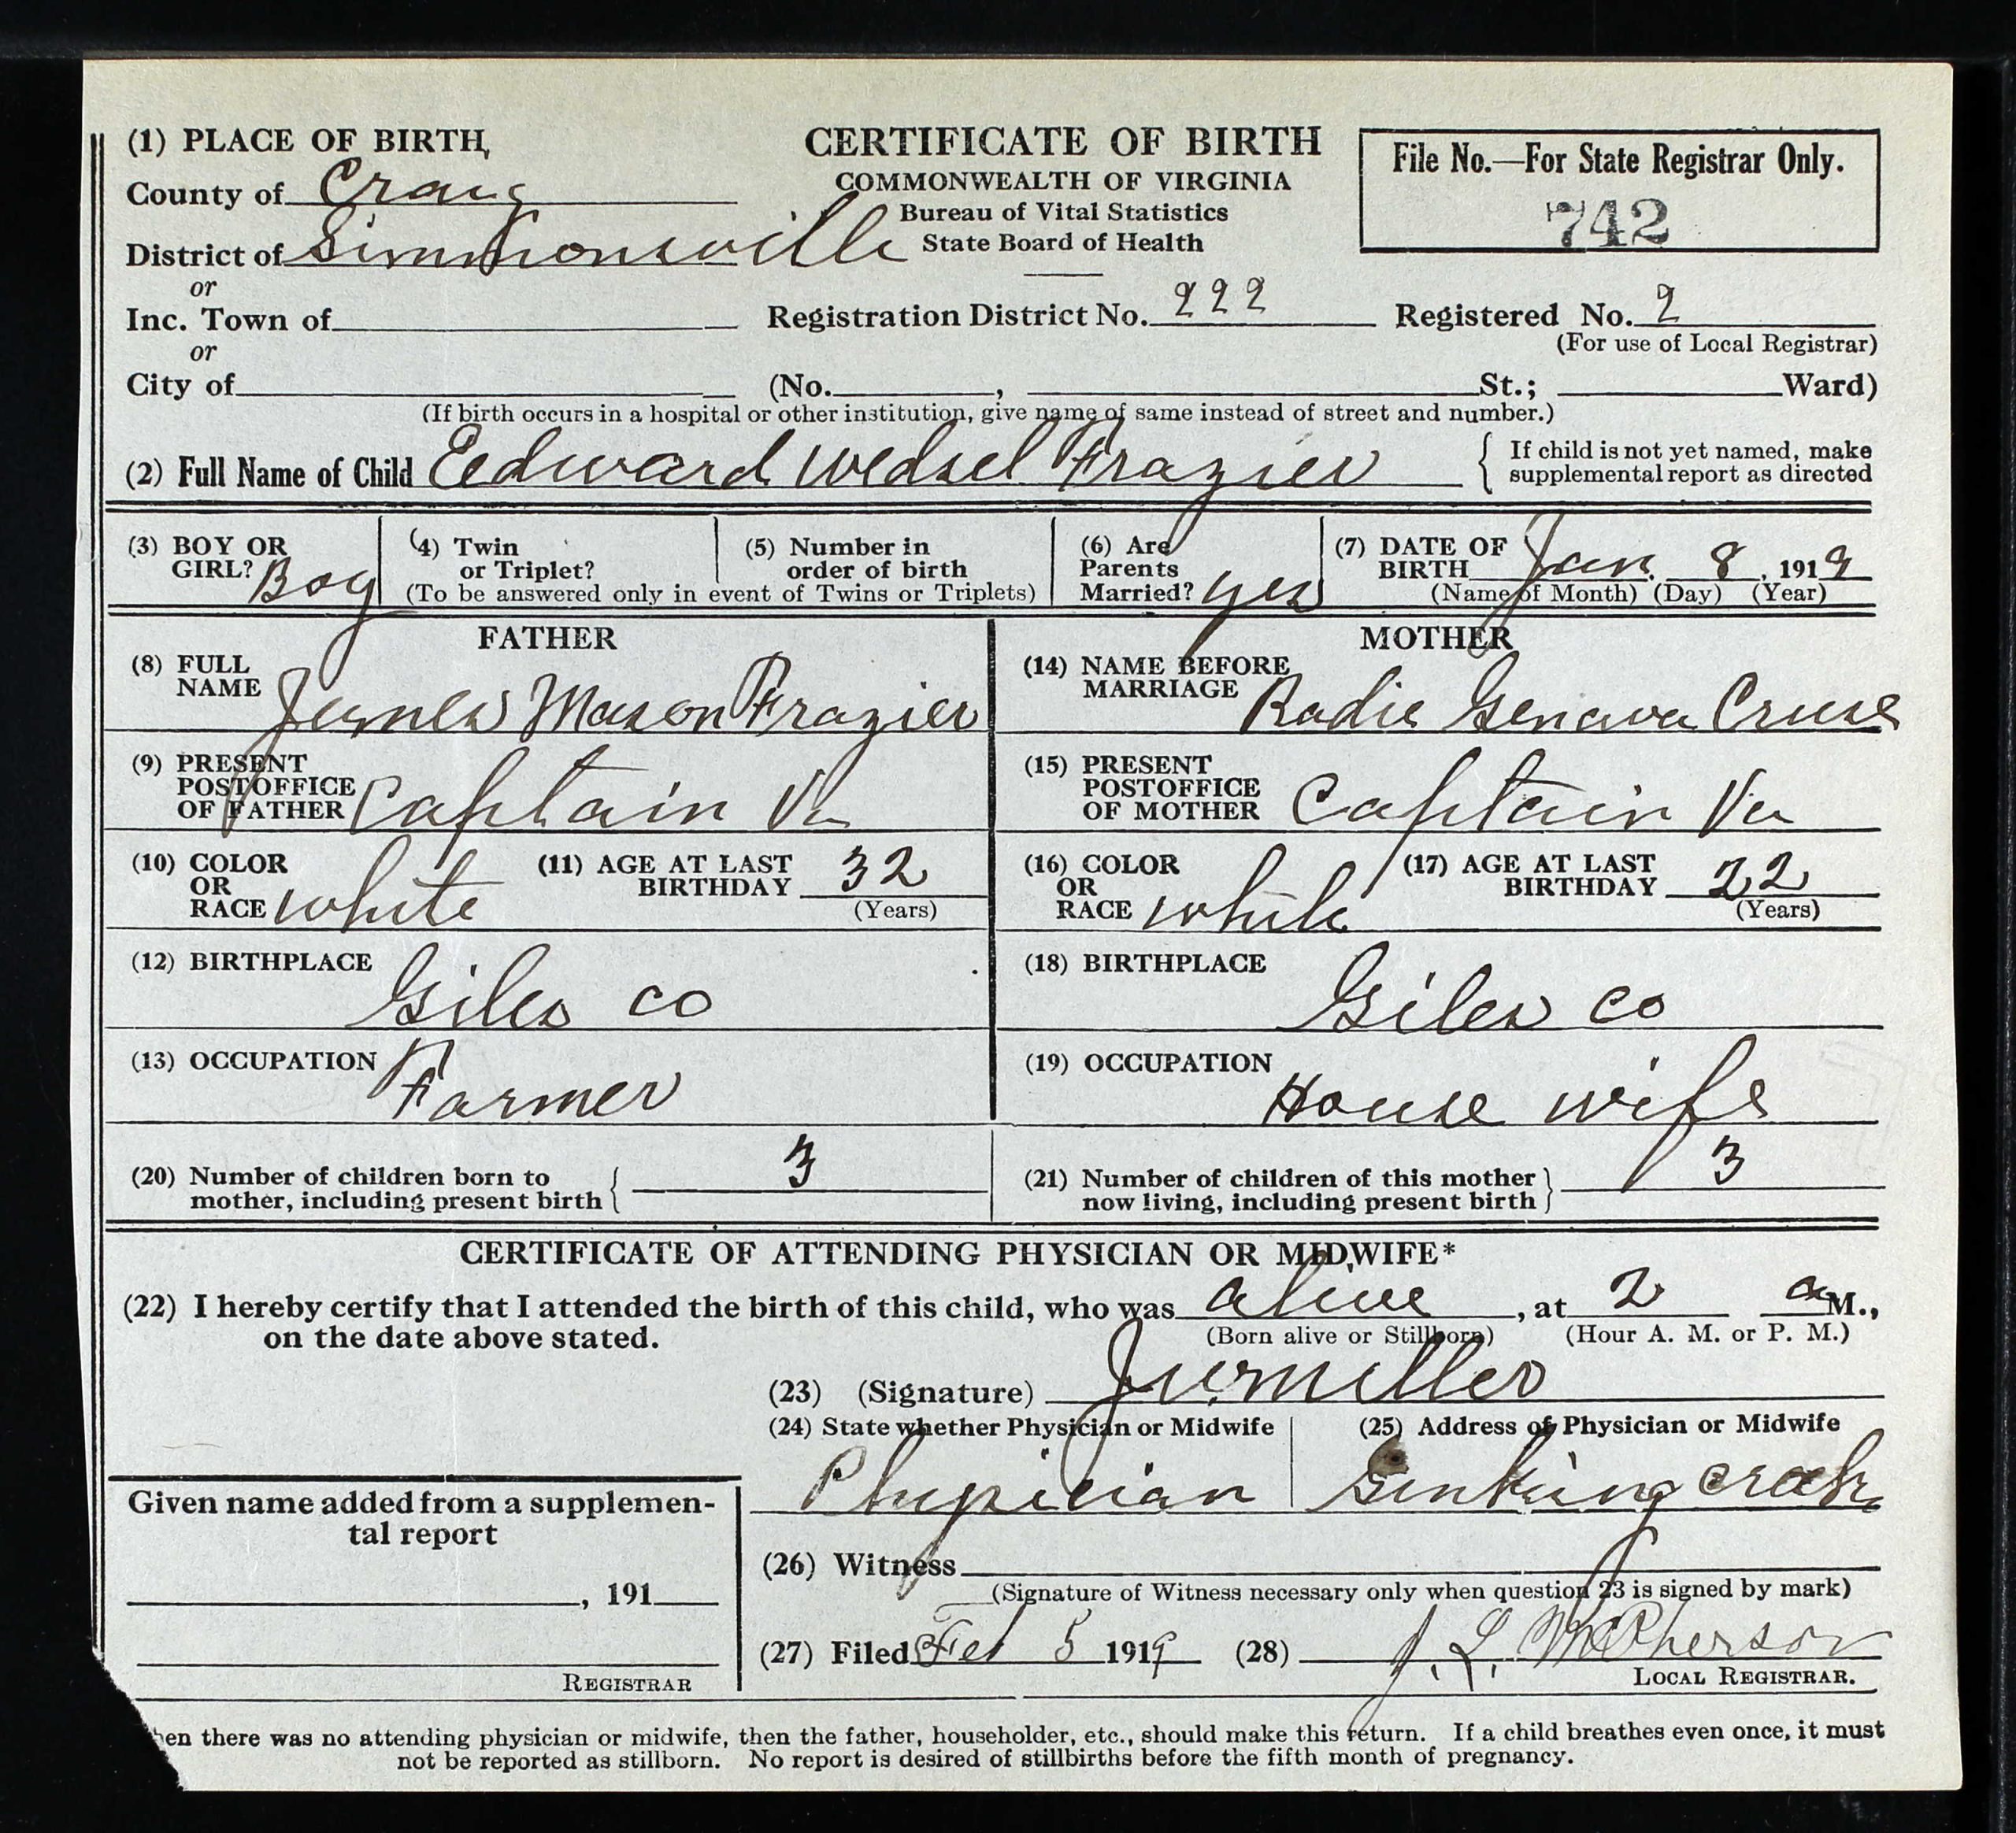 (1) PLACE OF BIRTH,
CERTIFICATE OF BIRTH
COMMONWEALTH OF VIRGINIA
Bureau of Vital Statistics
State Board of Health
File No.—For State Registrar Only.
742
County of Craig
District of Simmonsville
or
Inc. Town of
Registration District No. 222
Registered No. 2
(For use of Local Registrar)
or
City of (No. , St.; Ward)
(If birth occurs in a hospital or other institution, give name of same instead of street and number.)
(2) Full Name of Child Eedward Wedsel Frazier
{ If child is not yet named, make
supplemental report as directed
(3) BOY OR
GIRL? Boy
(4) Twin
or Triplet?
(5) Number in
order of birth
(To be answered only in event of Twins or Triplets)
(6) Are
Parents
Married? yes
(7) DATE OF
BIRTH Jan. 8, 1919
(Name of Month) (Day) (Year)
FATHER
(8) FULL
NAME James Mason Frazier
(9) PRESENT
POSTOFFICE
OF FATHER Captain Va
(10) COLOR
OR
RACE white
(11) AGE AT LAST
BIRTHDAY 32
(Years)
(12) BIRTHPLACE
Giles co
(13) OCCUPATION
Farmer
MOTHER
(14) NAME BEFORE
MARRIAGE Radie Genava Cruse
(15) PRESENT
POSTOFFICE
OF MOTHER Captain Va
(16) COLOR
OR
RACE white
(17) AGE AT LAST
BIRTHDAY 22
(Years)
(18) BIRTHPLACE
Giles co
(19) OCCUPATION
House wife
(20) Number of children born to
mother, including present birth { 3
(21) Number of children of this mother
now living, including present birth } 3
CERTIFICATE OF ATTENDING PHYSICIAN OR MIDWIFE*
(22) I hereby certify that I attended the birth of this child, who was alive, at 2 a M.,
on the date above stated. (Born alive or Stillborn) (Hour A. M. or P. M.)
(23) (Signature) Miller
(24) State whether Physician or Midwife
Physician
(25) Address of Physician or Midwife
Sinking creek
Given name added from a supplemen-
tal report
, 191
REGISTRAR
(26) Witness
(Signature of Witness necessary only when question 23 is signed by mark)
(27) Filed Feb 5 1919 (28) J. L. McPherson
LOCAL REGISTRAR.
en there was no attending physician or midwife, then the father, householder, etc., should make this return. If a child breathes even once, it must
not be reported as stillborn. No report is desired of stillbirths before the fifth month of pregnancy.